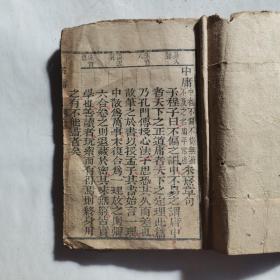 中庸 中者不偏不倚無過不及之名庸平常也 朱熹章句
子程子曰不偏之謂中不易之謂庸中
者天下之正道庸者天下之定理此篇
乃孔門傳授心法子思恐其久而差也
故筆之於書以授孟子其書始言一理
中散為萬事末復合為一理放之則彌
六合卷之則退藏於密其味無窮皆實
學也善讀者玩索而有得焉則終身用
之有不能盡者矣